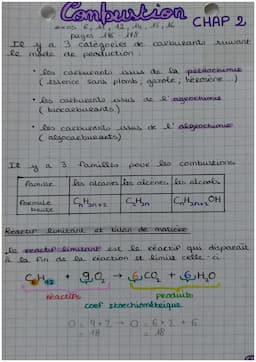 Combustion
CHAP 2
exos 6, 11, 12, 14, 15, 16
pages 116 - 118
Il y a 3 catégories de carburants suivant
le mode de production :
• les carburants issus de la pétrochimie
( essence sans plomb, gazole, kérosène ...)
• les carburants issus de l'agrochimie
( biocarburants )
• les carburants issus de l'algochimie
( algocarburants )
Il y a 3 familles pour les combustions.
famille les alcanes les alcènes les alcools
formule brute CnH2n+2 CnH2n CnH2n+1OH
Réactif limitant et bilan de matière
Le réactif limitant est le réactif qui disparaît
à la fin de la réaction et limite celle-ci
C6H12 + 9O2 → 6CO2 + 6H2O
réactifs produits
coef stoechiométrique
O = 9 × 2 → O = 6 × 2 + 6
= 18 = 18